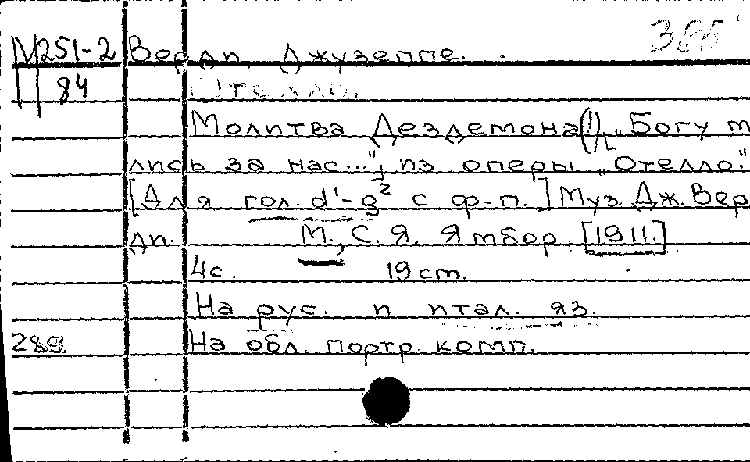 М251-2 Верди, Джузеппе.
84 Отелло.
Молитва Дездемона(!), „Богу м
лись за нас...", из оперы „Отелло".
[Для гол. d¹-g² с ф-п.] Муз. Дж. Вер
ди. М., С. Я. Ямбор, [1911.]
4с. 19 cm.
На рус. и итал. яз.
289 На обл. портр. комп.